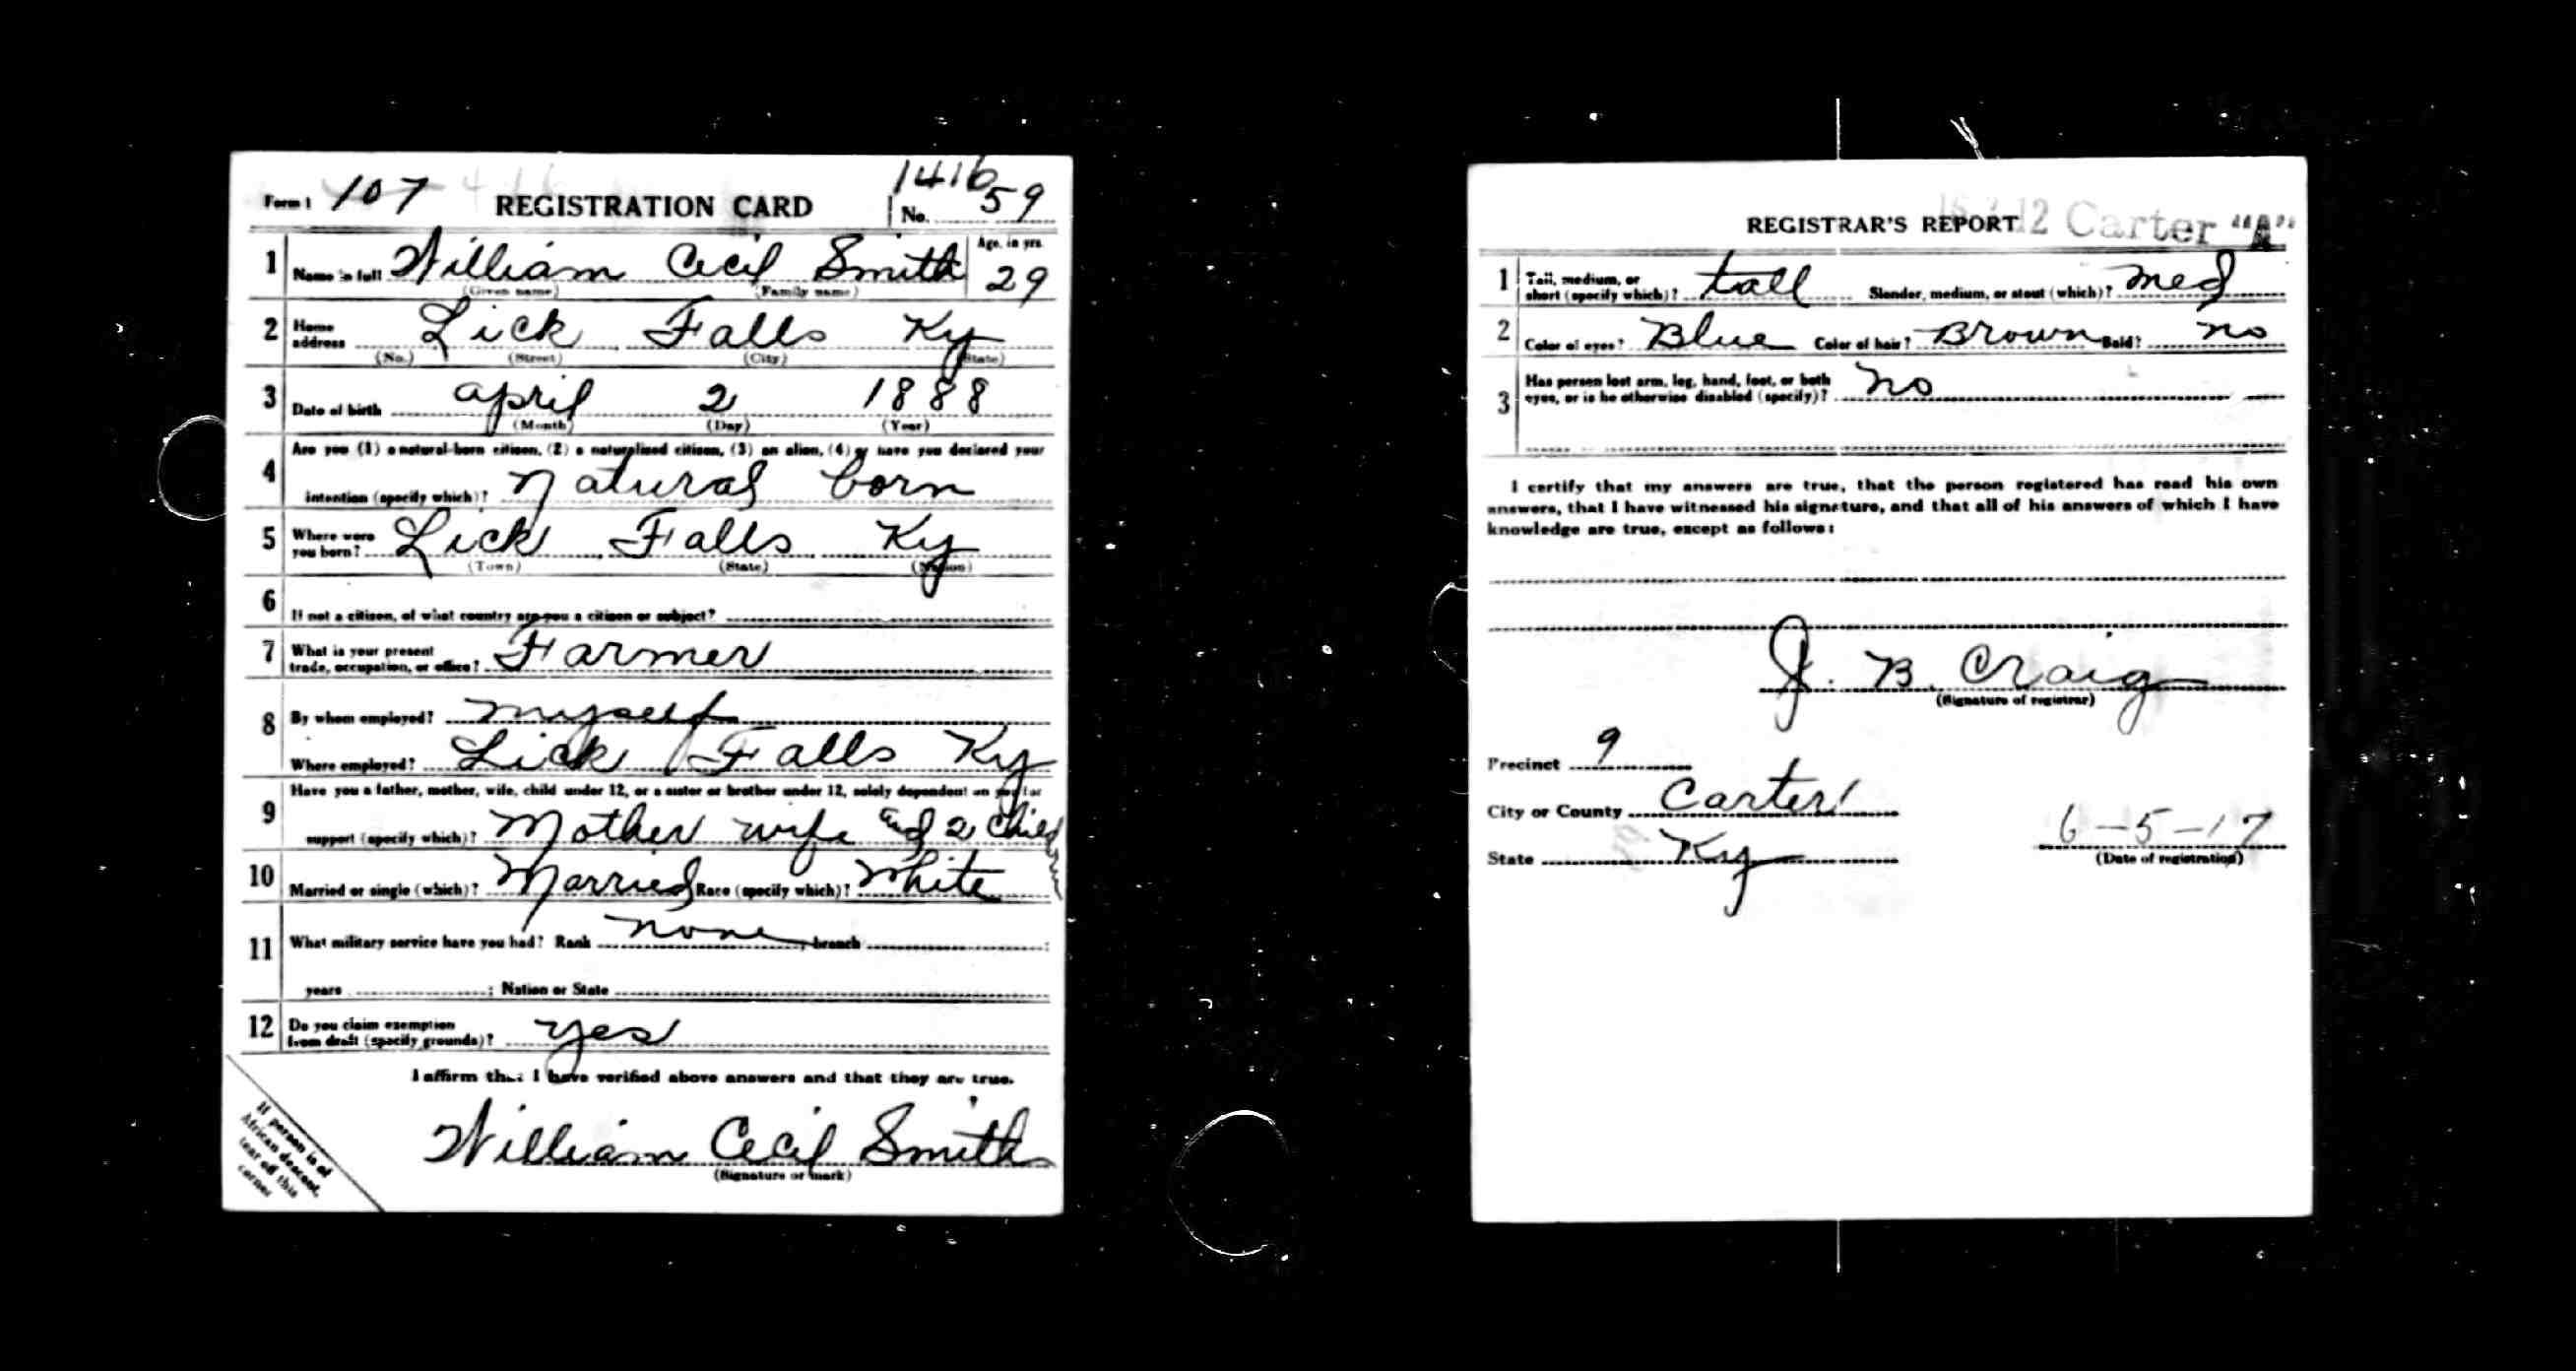 1416
Form 1 107 REGISTRATION CARD No. 59
1 Name in full William Cecil Smith Age, in yrs. 29
(Given name) (Family name)
2 Home address Lick Falls Ky
(No.) (Street) (City) (State)
3 Date of birth April 2 1888
(Month) (Day) (Year)
4 Are you (1) a natural-born citizen, (2) a naturalized citizen, (3) an alien, (4) or have you declared your
intention (specify which)? Natural born
5 Where were you born? Lick Falls Ky
(Town) (State) (Nation)
6 If not a citizen, of what country are you a citizen or subject?
7 What is your present trade, occupation, or office? Farmer
8 By whom employed? myself
Where employed? Lick Falls Ky
9 Have you a father, mother, wife, child under 12, or a sister or brother under 12, solely dependent on you for
support (specify which)? Mother wife and 2 Children
10 Married or single (which)? Married Race (specify which)? White
11 What military service have you had? Rank none, branch ;
years ; Nation or State
12 Do you claim exemption from draft (specify grounds)? yes
I affirm that I have verified above answers and that they are true.
William Cecil Smith
(Signature or mark)
If person is of
African descent,
tear off this
corner
REGISTRAR'S REPORT 12 Carter "A"
1 Tall, medium, or short (specify which)? tall Slender, medium, or stout (which)? med
2 Color of eyes? Blue Color of hair? Brown Bald? no
3 Has person lost arm, leg, hand, foot, or both
eyes, or is he otherwise disabled (specify)? no
I certify that my answers are true, that the person registered has read his own
answers, that I have witnessed his signature, and that all of his answers of which I have
knowledge are true, except as follows:
J. B. Craig
(Signature of registrar)
Precinct 9
City or County Carter
State Ky
6-5-17
(Date of registration)